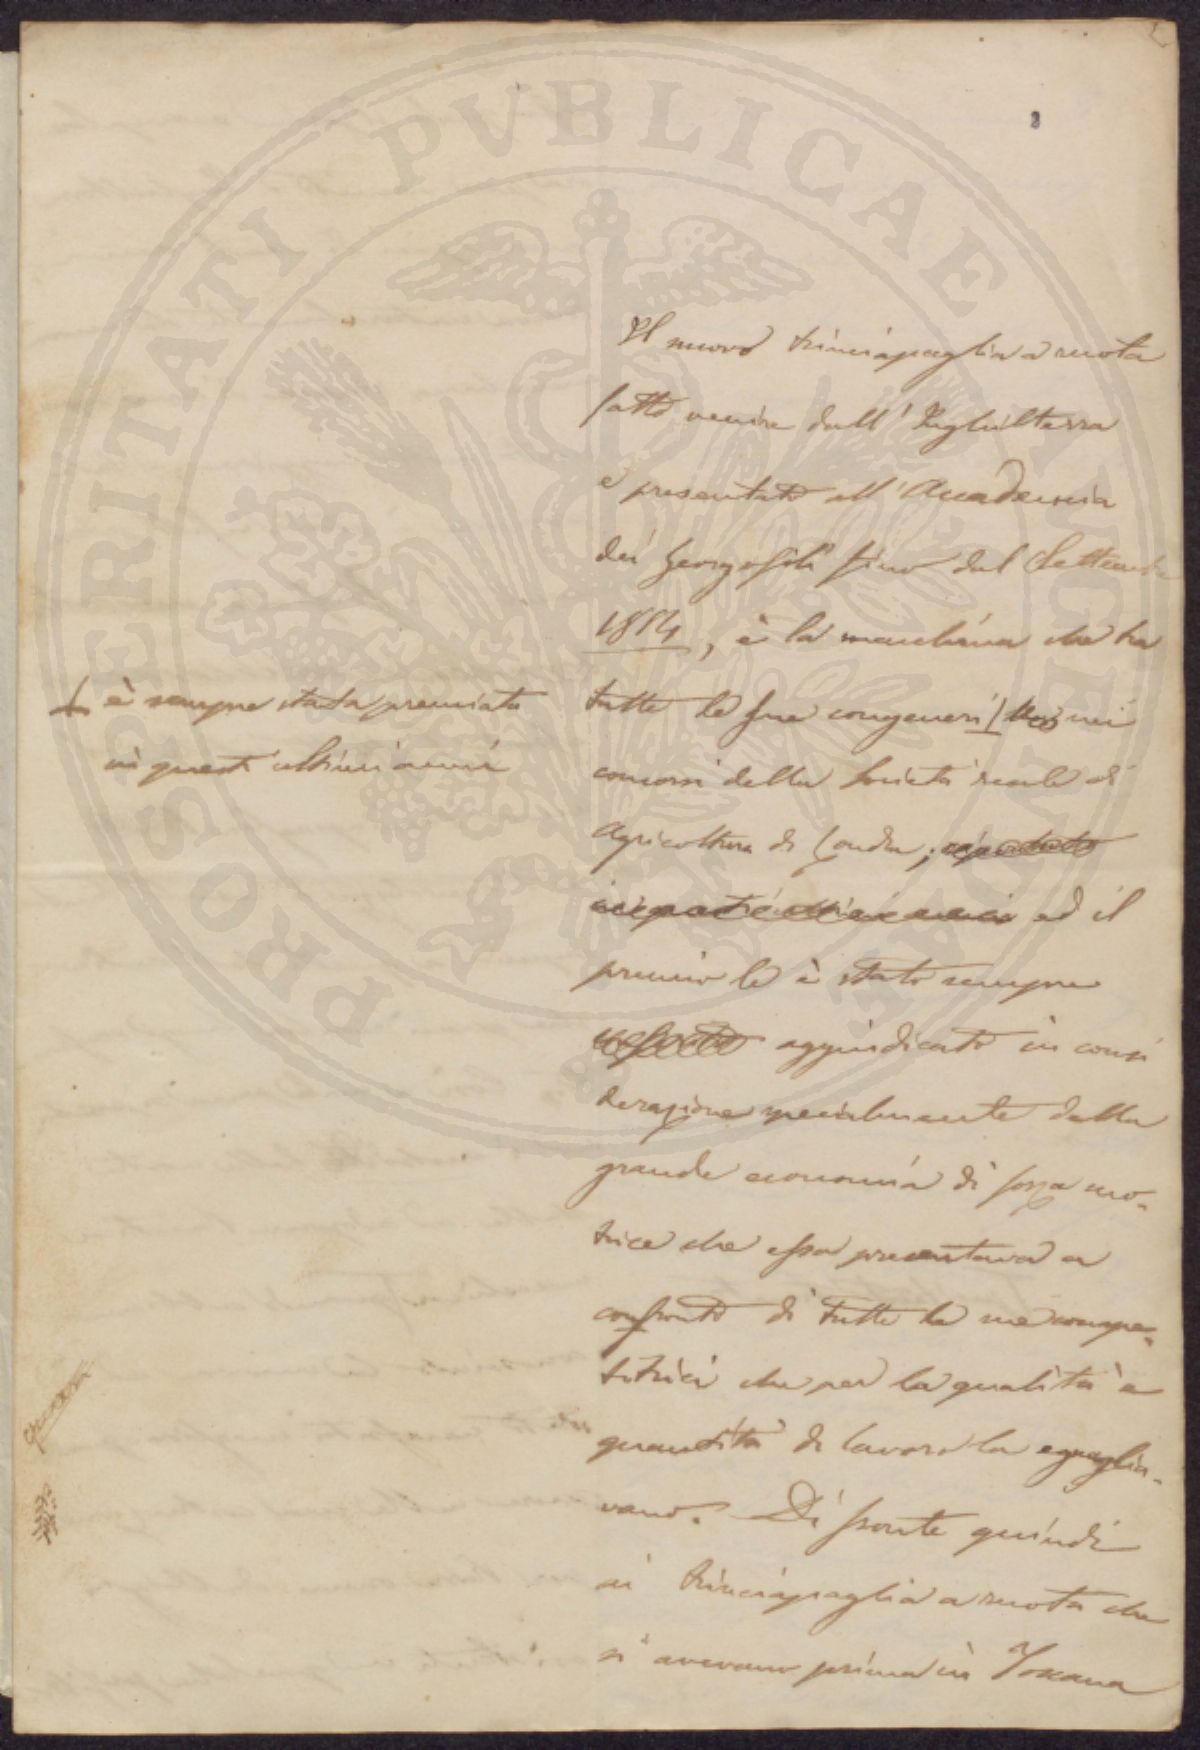 2
Il nuovo trinciapaglia a ruota
fatto venire dall' Inghilterra
e presentato all' Accademia
dei Georgofili fino dal Settembre
, è la macchina che tra
tutte le sue congeneri nei
concorsi della Società reale di
Agricoltura di Londra;
ed il
premio le è stato sempre
aggiudicato in consi
derazione specialmente della
grande economia di forza mo-
trice che essa presentava a
confronto di tutte le sue compe-
titrici che per la qualità e
quantità di lavoro la eguaglia-
vano. Di fronte quindi
ai trinciapaglia a ruota che
si avevano prima in Toscana
è sempre stata premiata
in questi ultimi anni
PROSPERITATI PVBLICAE AVGENDAE